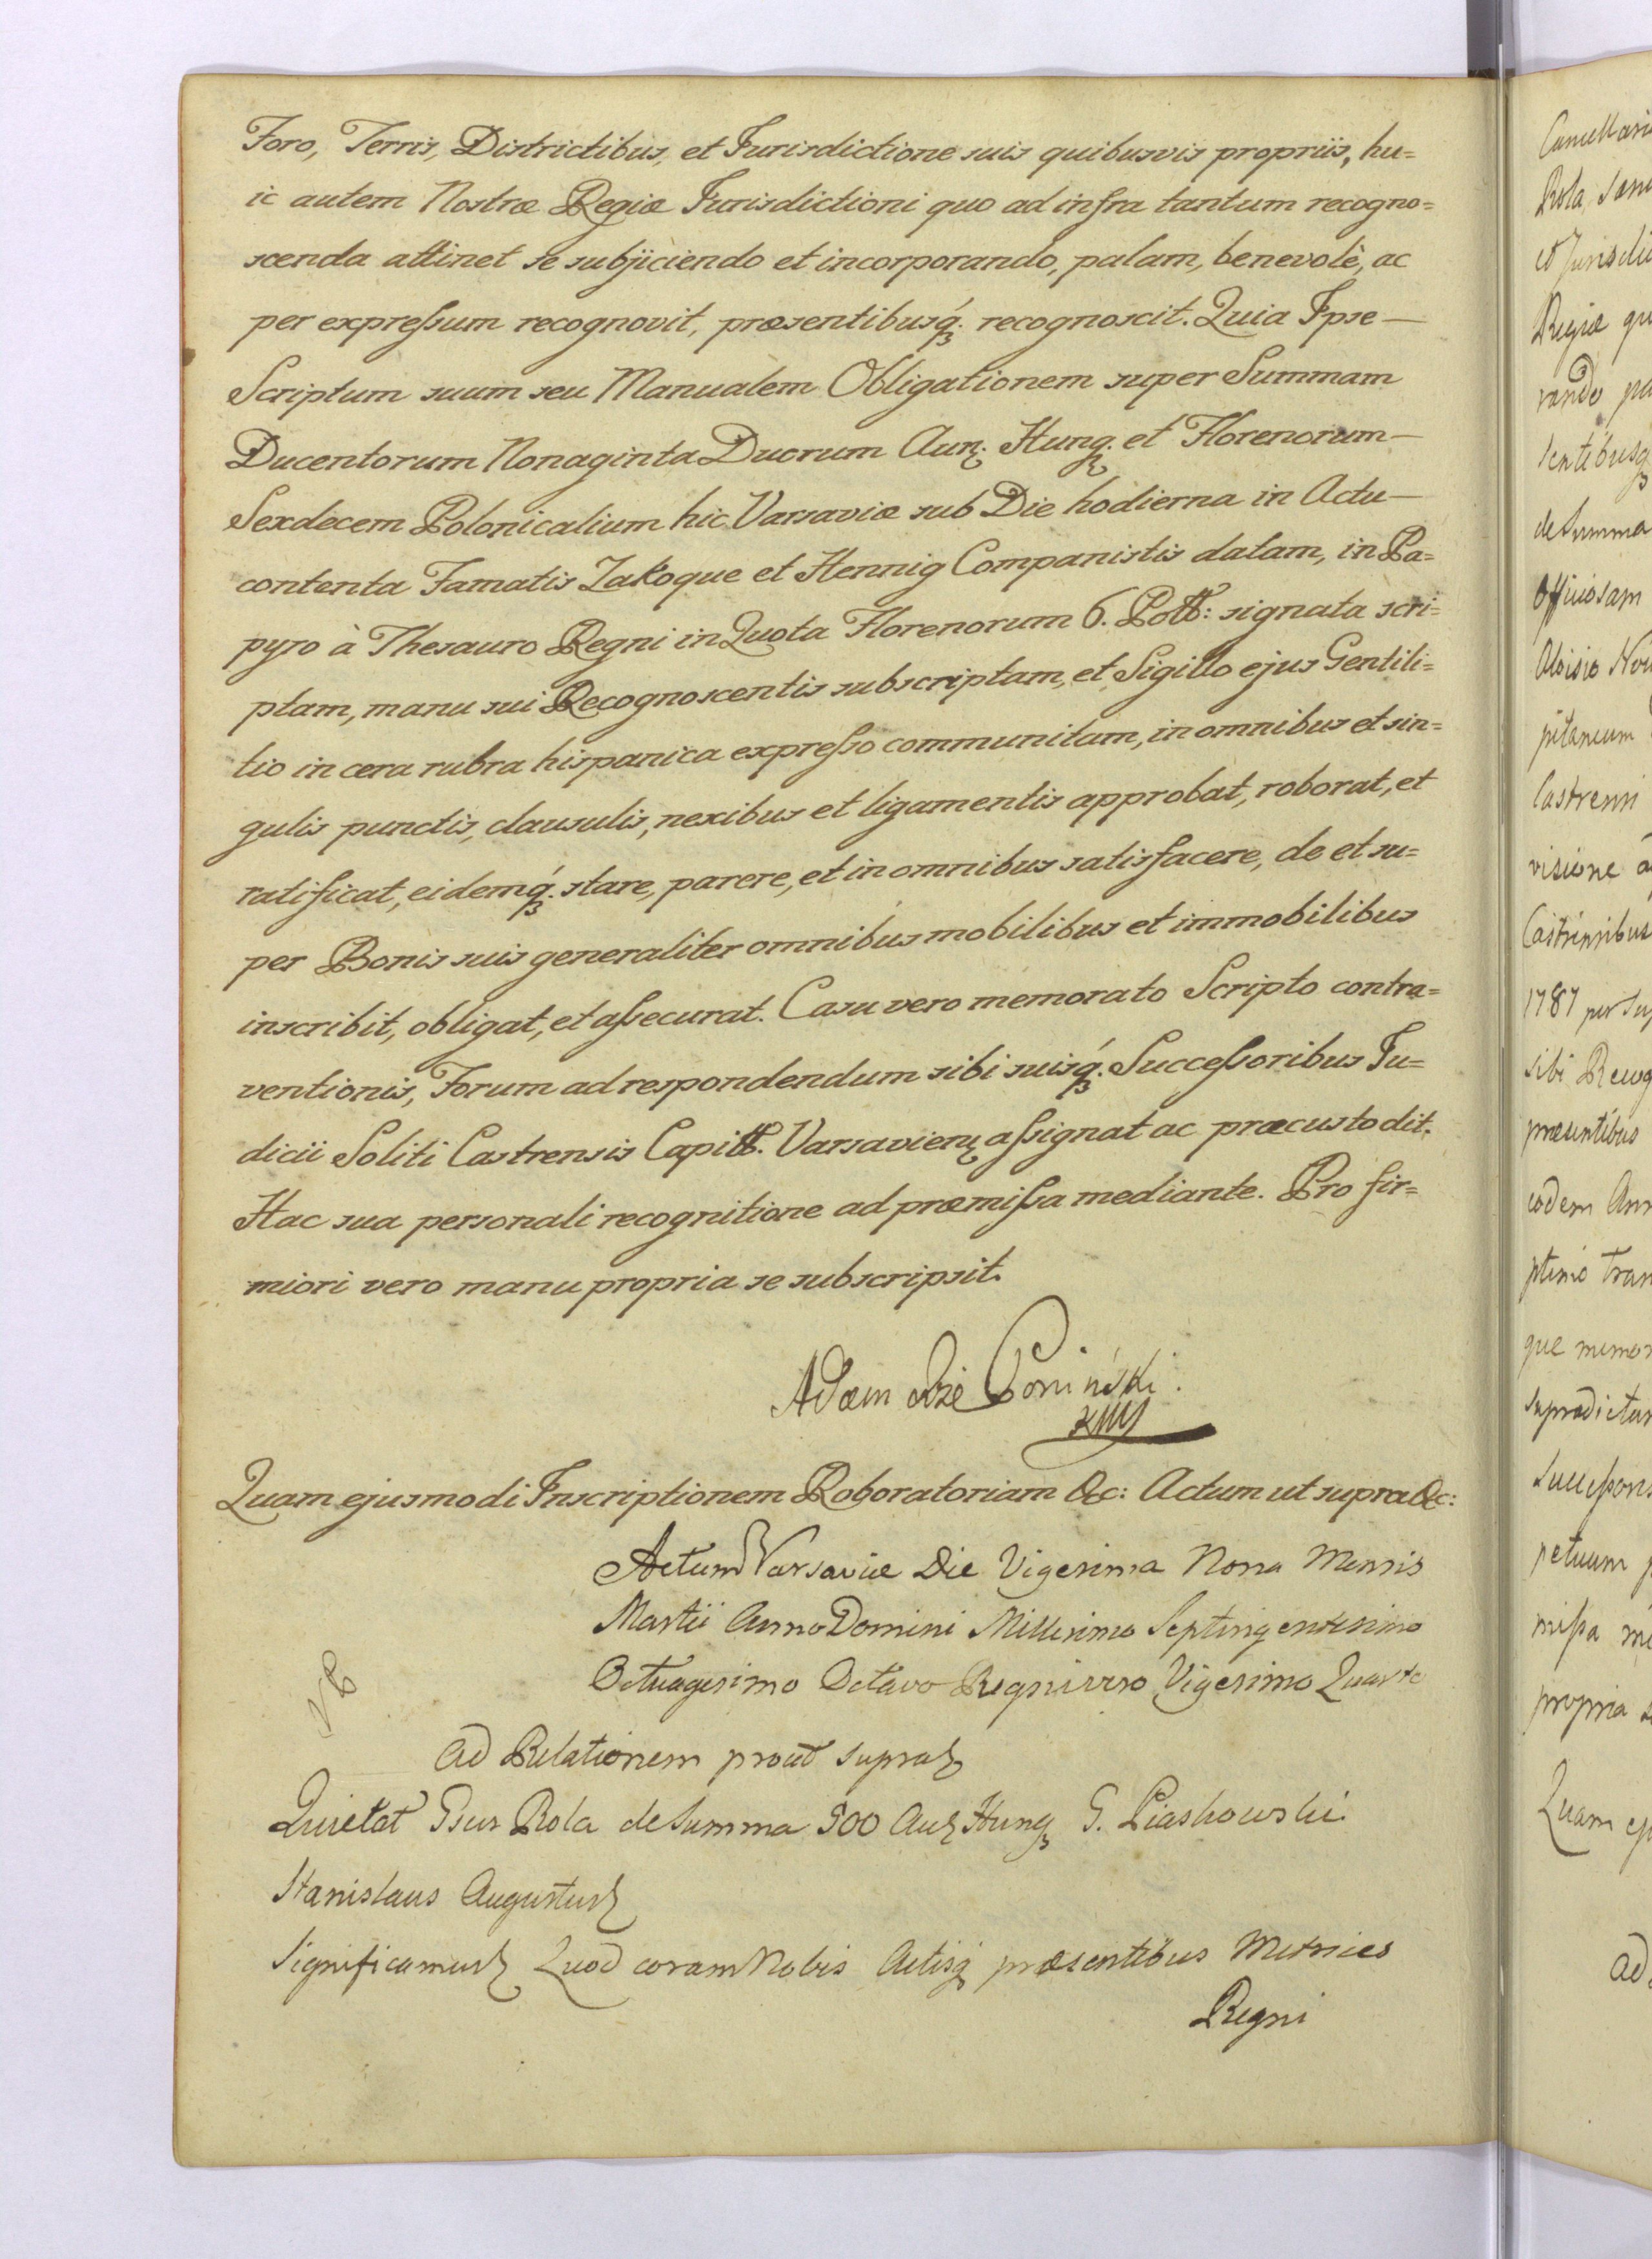 Foro, Terris, Districtibus, et Jurisdictione suis quibusvis propriis, hu=
ic autem Nostræ Regiæ Jurisdictioni quo ad infra tantum recogno=
scenda attinet se subjiciendo et incorporando, palam, benevolè, ac
per expressum recognovit, præsentibusq́. recognoscit. Quia Ipse —
Scriptum suum seu Manualem Obligationem super Summam
Ducentorum Nonaginta Duorum Aur. Hung. et Florenorum —
Sexdecem Polonicalium hic Varsaviæ sub Die hodierna in Actu —
contenta Famatis Zakoque et Hennig Companistis datam, in Pa=
pyro à Thesauro Regni in Quota Florenorum 6. Poll: signata scri=
ptam, manu sui Recognoscentis subscriptam, et Sigillo ejus Gentili=
tio in cera rubra hispanica expresso communitam, in omnibus et sin=
gulis punctis, clausulis, nexibus et ligamentis approbat, roborat, et
ratificat, eidemq́. stare, parere, et in omnibus satisfacere, de et su=
per Bonis suis generaliter omnibus mobilibus et immobilibus
inscribit, obligat, et assecurat. Casu vero memorato Scripto contra=
ventionis, Forum ad respondendum sibi suisq́. Successoribus Ju=
dicii Soliti Castrensis Capitt. Varsavien. assignat ac præcustodit.
Hac sua personali recognitione ad præmissa mediante. Pro fir=
miori vero manu propria se subscripsit.
Adam Poniński.
Quam ejusmodi Inscriptionem Roboratoriam &c: Actum ut supra &c:
Actum Varsaviæ Die Vigesima Nona Mensis
Martii Anno Domini Millesimo Septingentesimo
Octuagesimo Octavo Regni vero Vigesimo Quarto
NB
Ad Relationem prout supra
Quietat Gsus Rola de Summa 500 Aur Hung G. Piaskowski.
Stanislaus Augustus
Significamus Quod coram Nobis Actisq præsentibus Metrices
Regni
Cancellari
Rola
et Jurisdic
Regiæ qu
rando pa
sentibusq
de Summa
Officiosam
Aloisio Nov
pitaneum
Castrensi
visione a
Castrensibus
1787 per Su
sibi Recog
præsentibus
eodem Ann
ptimo Tran
que memor
supradictum
Successoris
petuum p
missa me
propria s
Quam ej
Ad